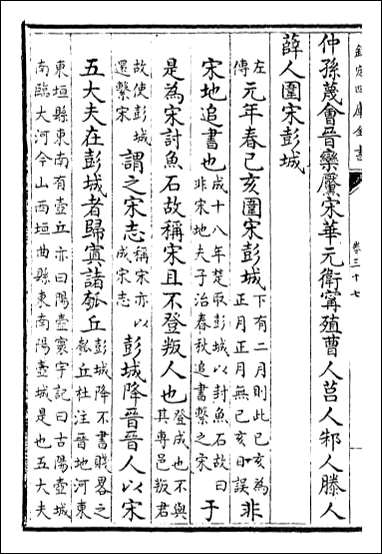 欽定四庫全書
卷三十七
仲孫蔑會晉欒黶宋華元衛甯殖曹人莒人邾人滕人
薛人圍宋彭城
左傳元年春己亥圍宋彭城下有二月則此己亥為正月正月無己亥日誤非
宋地追書也成十八年楚取彭城以封魚石故曰非宋地夫子治春秋追書繫之宋于
是為宋討魚石故稱宋且不登叛人也登成也不與其專邑叛君
故使彭城還繫宋謂之宋志稱宋亦以成宋志彭城降晉晉人以宋
五大夫在彭城者歸寘諸瓠丘彭城降不書賤畧之瓠丘杜注晉地河東
東垣縣東南有壺丘亦曰陽壺寰宇記曰古陽壺城
南臨大河今山西垣曲縣東南陽壺城是也五大夫